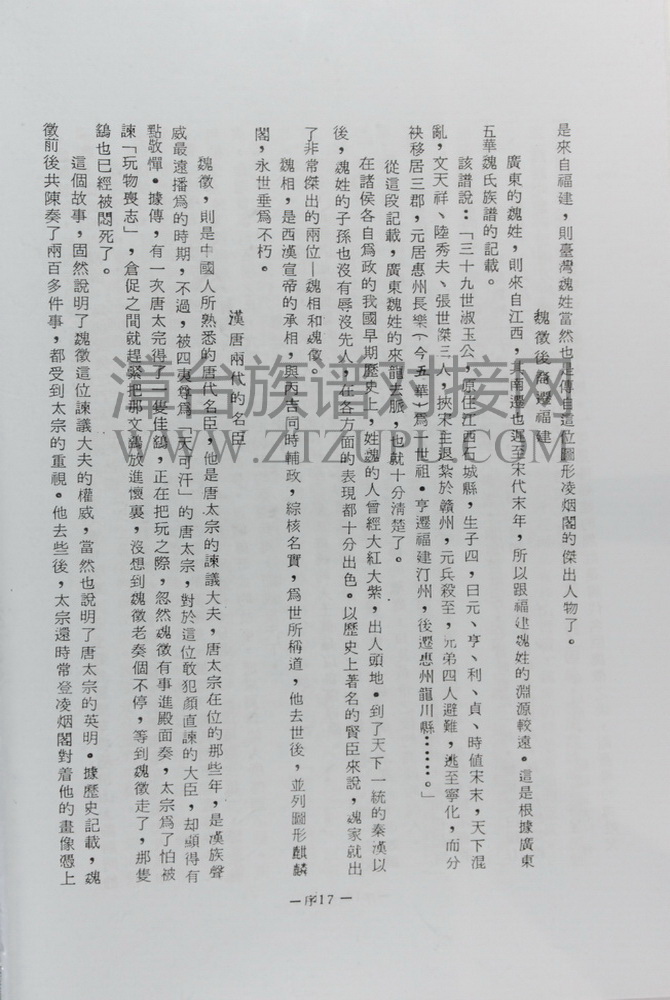 是來自福建，則臺灣魏姓當然也是傳自這位圖形凌烟閣的傑出人物了。
魏徵後裔遷福建
廣東的魏姓，則來自江西，其南遷也遲至宋代末年，所以跟福建魏姓的淵源較遠。這是根據廣東
五華魏氏族譜的記載。
該譜說：「三十九世淑玉公，原住江西石城縣，生子四，曰元、亨、利、貞、時値宋末，天下混
亂，文天祥、陸秀夫、張世傑三人，挾宋主退紮於贛州，元兵殺至，兄弟四人避難，逃至寧化，而分
袂移居三郡，元居惠州長樂（今五華）爲一世祖。亨遷福建汀州，後遷惠州龍川縣……。」
從這段記載，廣東魏姓的來龍去脈，也就十分清楚了。
在諸侯各自爲政的我國早期歷史上，姓魏的人曾經大紅大紫，出人頭地。到了天下一統的秦漢以
後，魏姓的子孫也沒有辱沒先人，在各方面的表現都十分出色。以歷史上著名的賢臣來說，魏家就出
了非常傑出的兩位—魏相和魏徵。
魏相，是西漢宣帝的承相，與丙吉同時輔政，綜核名實，爲世所稱道，他去世後，並列圖形麒麟
閣，永世垂爲不朽。
漢唐兩代的名臣
魏徵，則是中國人所熟悉的唐代名臣，他是唐太宗的諫議大夫，唐太宗在位的那些年，是漢族聲
威最遠播爲的時期，不過，被四夷尊爲「天可汗」的唐太宗，對於這位敢犯顏直諫的大臣，却顯得有
點敬憚。據傳，有一次唐太宗得了一隻佳鷂，正在把玩之際，忽然魏徵有事進殿面奏，太宗爲了怕被
諫「玩物喪志」，倉促之間就趕緊把那文鷂放進懷裏，沒想到魏徵老奏個不停，等到魏徵走了，那隻
鷂也已經被悶死了。
這個故事，固然說明了魏徵這位諫議大夫的權威，當然也說明了唐太宗的英明。據歷史記載，魏
徵前後共陳奏了兩百多件事，都受到太宗的重視。他去些後，太宗還時常登凌烟閣對着他的畫像憑上
—序17—
清台族谱对接网
WWW.ZTZUPU.COM